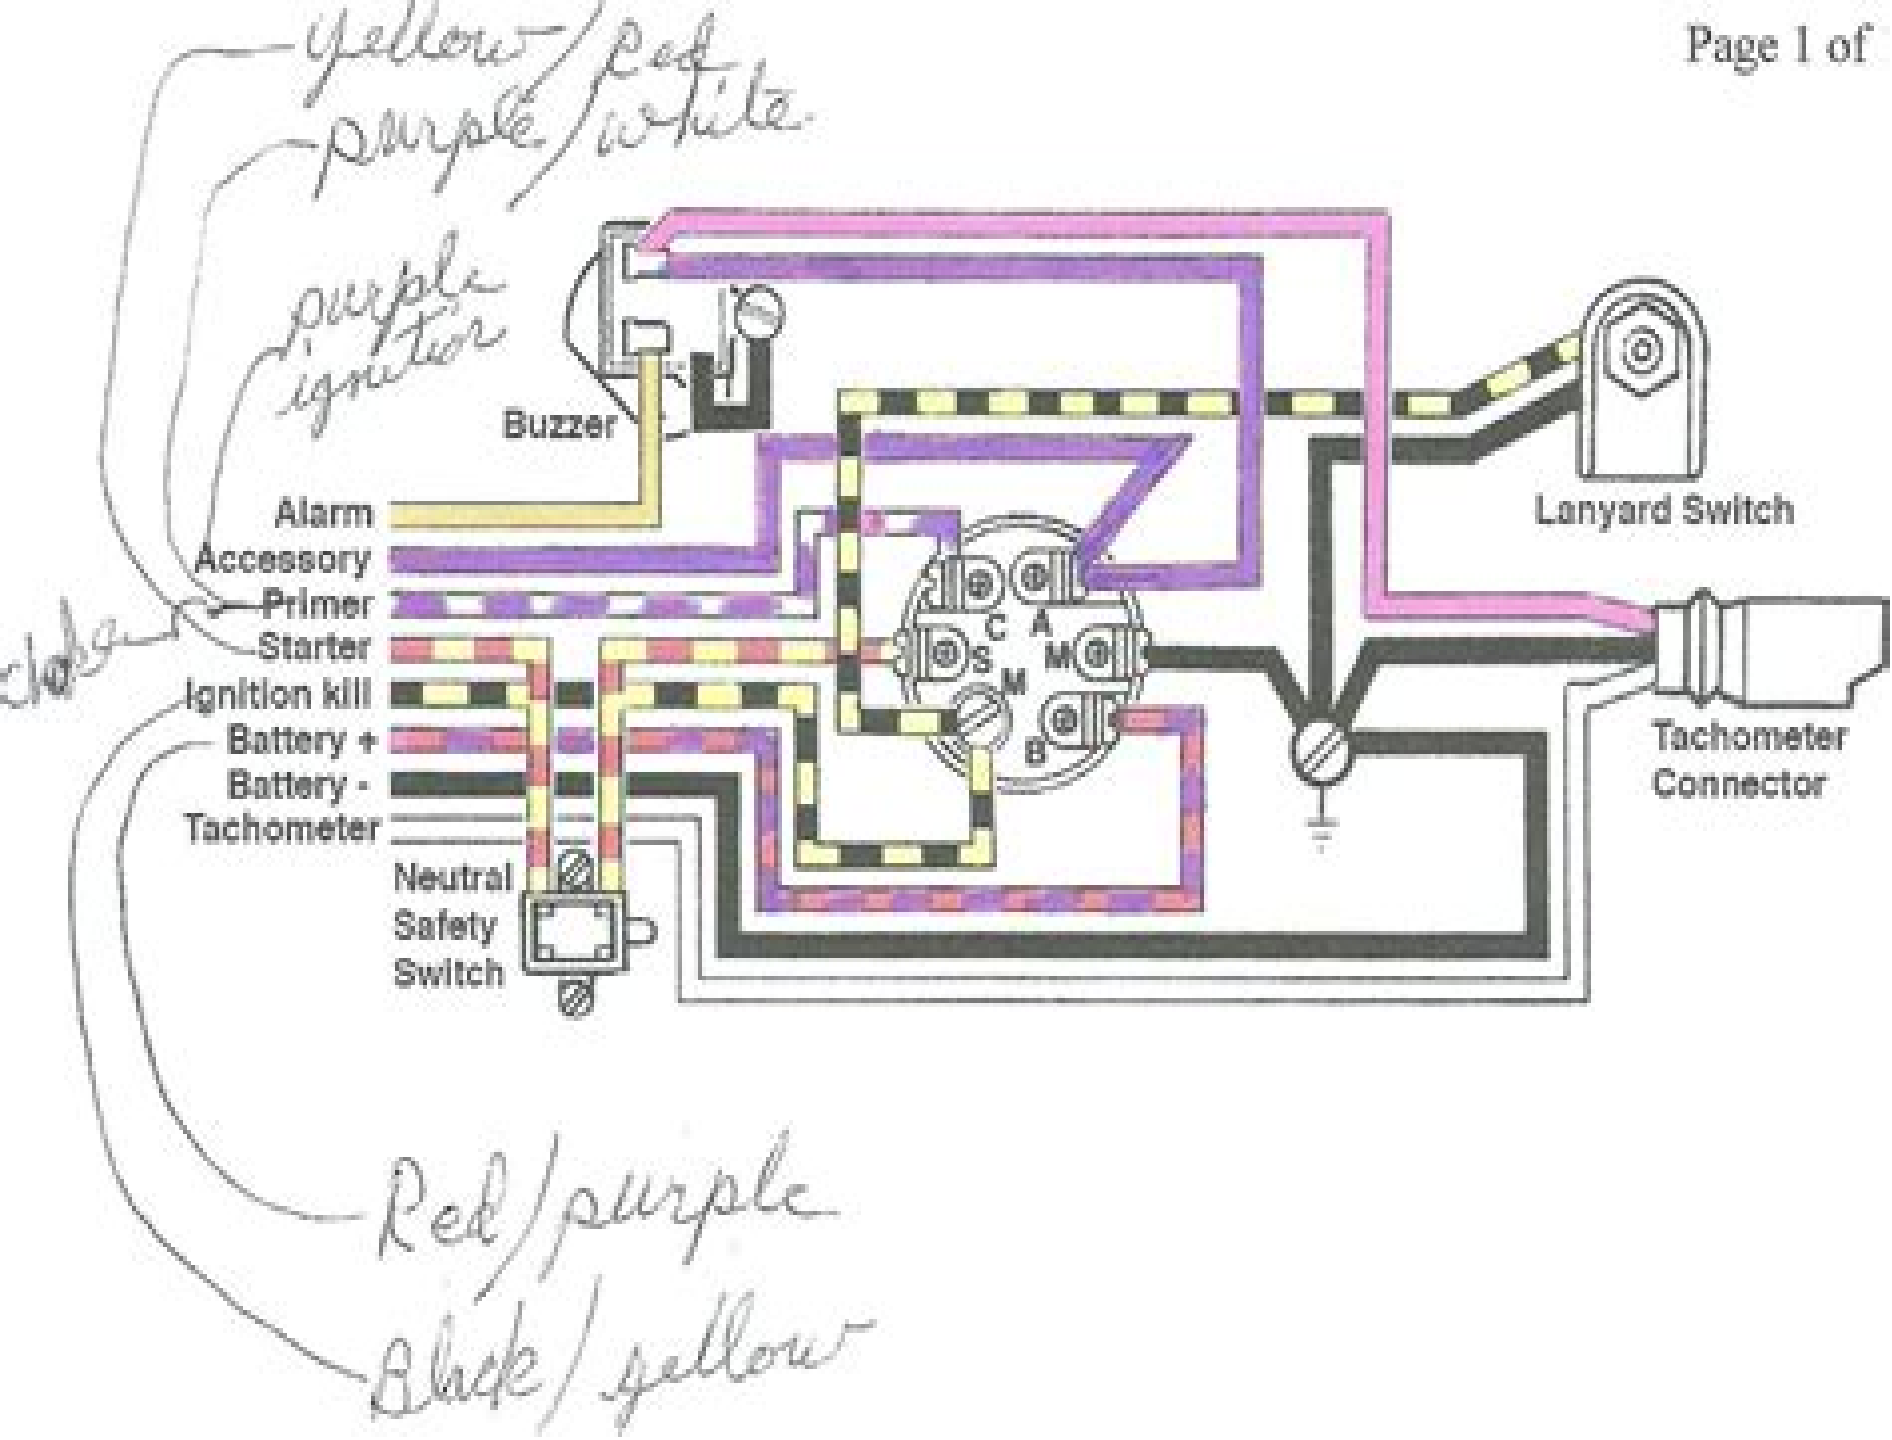 Page 1 of
yellow/Red
purple/white
purple
ignitior
Buzzer
Alarm
Accessory
Primer
Starter
Ignition kill
Battery +
Battery -
Tachometer
Neutral
Safety
Switch
C A
S M
M
B
Lanyard Switch
Tachometer
Connector
Red/purple
Black/yellow